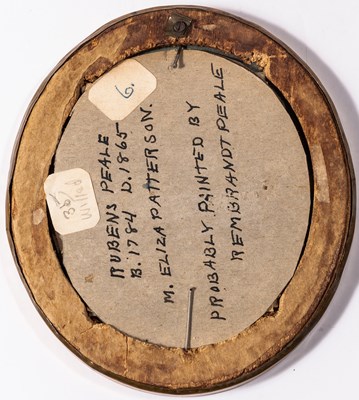 6.
35/
RUBENS PEALE
B. 1784 D. 1865
M. ELIZA PATTERSON.
PROBABLY PAINTED BY
REMBRANDT PEALE